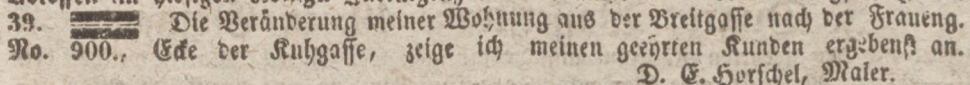 39. Die Veränderung meiner Wohnung aus der Breitgasse nach der Fraueng.
No. 900., Ecke der Kuhgasse, zeige ich meinen geehrten Kunden ergebenst an.
D. E. Horschel, Maler.